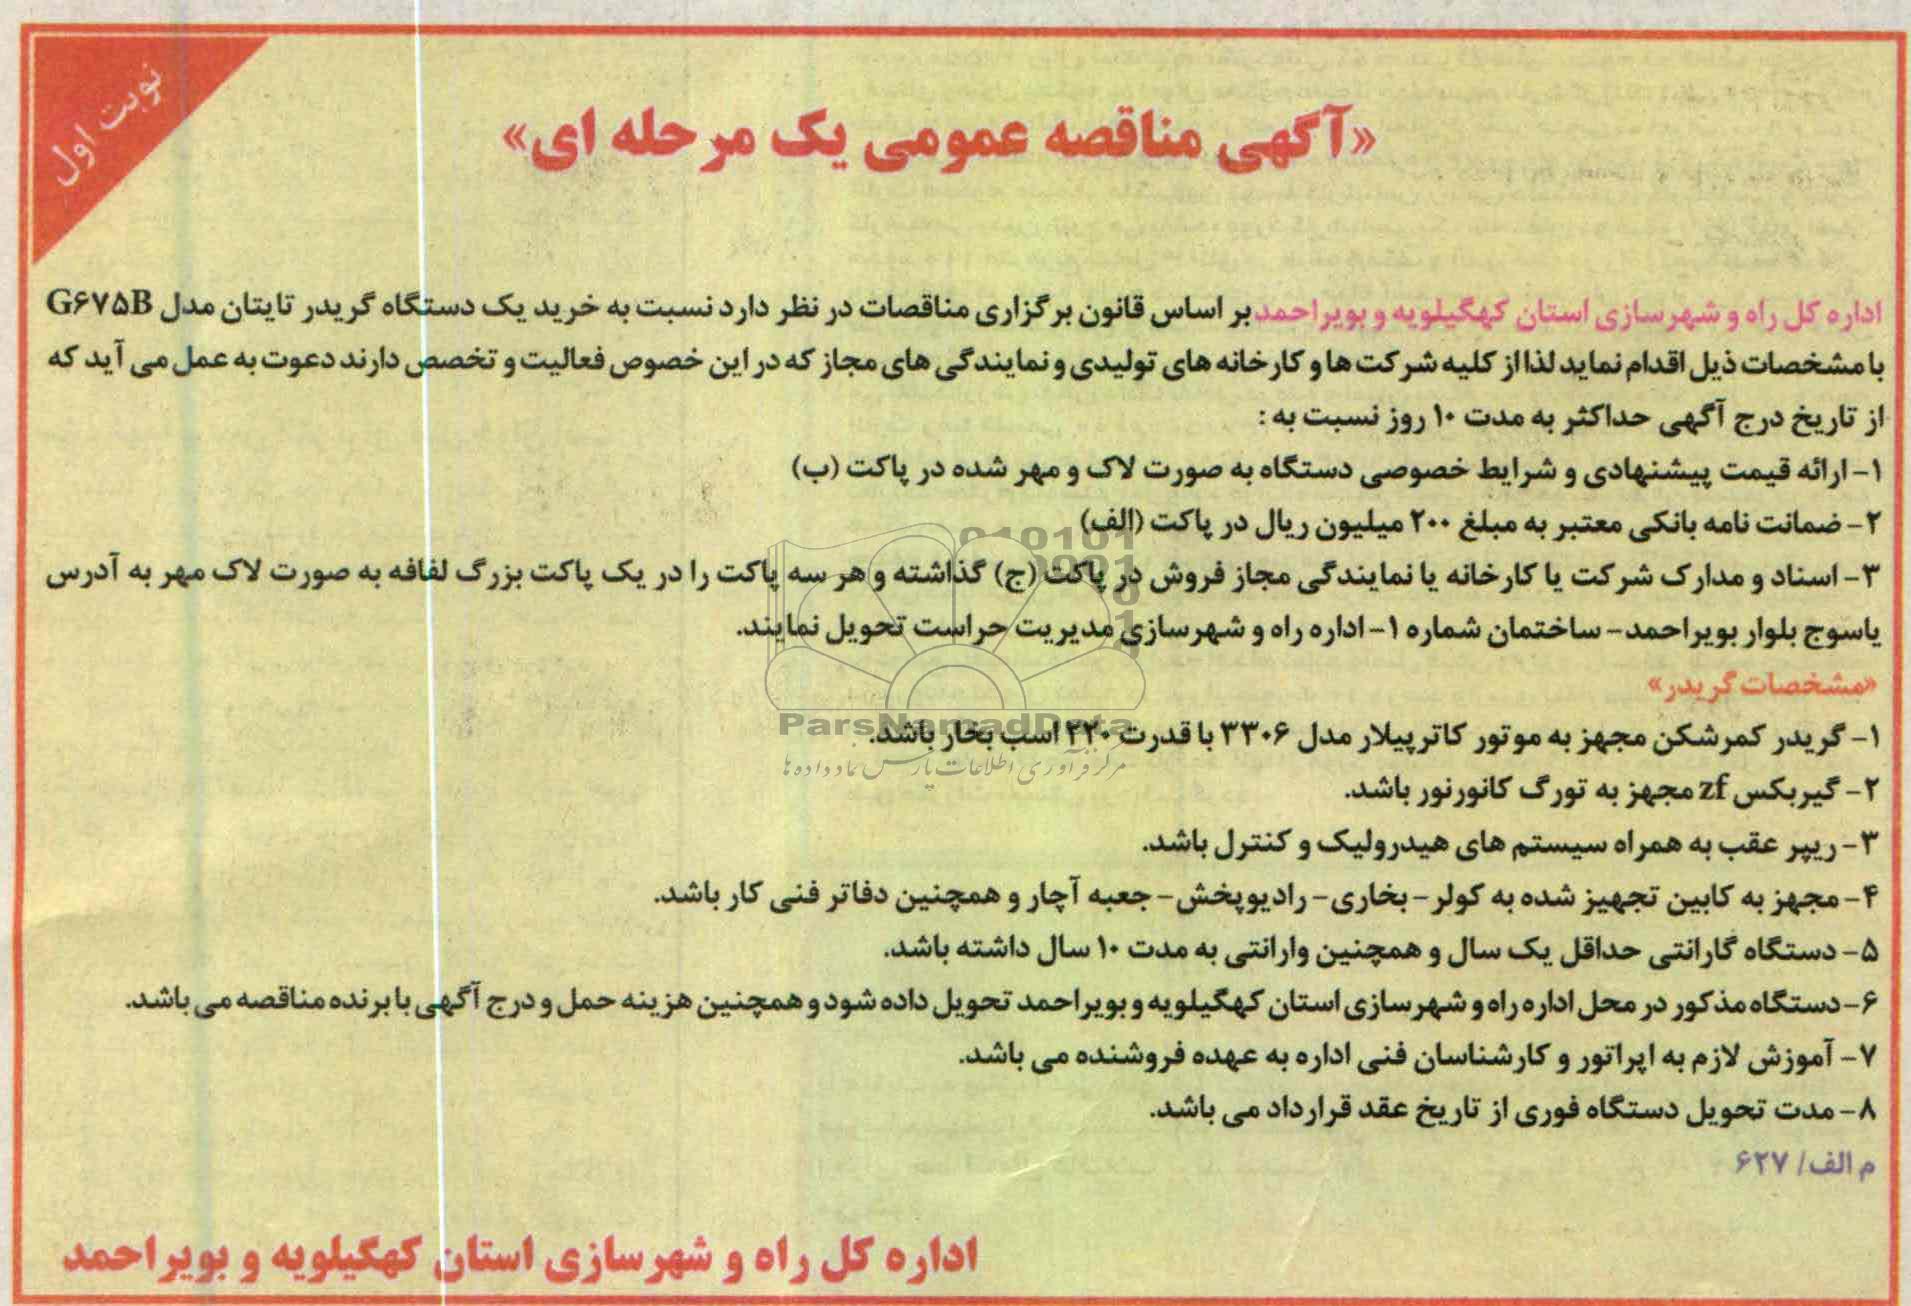 نوبت اول
«آگهی مناقصه عمومی یک مرحله ای»
اداره کل راه و شهرسازی استان کهگیلویه و بویراحمد بر اساس قانون برگزاری مناقصات در نظر دارد نسبت به خرید یک دستگاه گریدر تایتان مدل G۶۷۵B
با مشخصات ذیل اقدام نماید لذا از کلیه شرکت ها و کارخانه های تولیدی و نمایندگی های مجاز که در این خصوص فعالیت و تخصص دارند دعوت به عمل می آید که
از تاریخ درج آگهی حداکثر به مدت ۱۰ روز نسبت به :
۱- ارائه قیمت پیشنهادی و شرایط خصوصی دستگاه به صورت لاک و مهر شده در پاکت (ب)
۲- ضمانت نامه بانکی معتبر به مبلغ ۲۰۰ میلیون ریال در پاکت (الف)
۳- اسناد و مدارک شرکت یا کارخانه یا نمایندگی مجاز فروش در پاکت (ج) گذاشته و هر سه پاکت را در یک پاکت بزرگ لفافه به صورت لاک مهر به آدرس
یاسوج بلوار بویراحمد- ساختمان شماره ۱- اداره راه و شهرسازی مدیریت حراست تحویل نمایند.
«مشخصات گریدر»
۱- گریدر کمرشکن مجهز به موتور کاترپیلار مدل ۳۳۰۶ با قدرت ۲۲۰ اسب بخار باشد.
۲- گیربکس zf مجهز به تورگ کانورنور باشد.
۳- ریپر عقب به همراه سیستم های هیدرولیک و کنترل باشد.
۴- مجهز به کابین تجهیز شده به کولر- بخاری- رادیوپخش- جعبه آچار و همچنین دفاتر فنی کار باشد.
۵- دستگاه گارانتی حداقل یک سال و همچنین وارانتی به مدت ۱۰ سال داشته باشد.
۶- دستگاه مذکور در محل اداره راه و شهرسازی استان کهگیلویه و بویراحمد تحویل داده شود و همچنین هزینه حمل و درج آگهی با برنده مناقصه می باشد.
۷- آموزش لازم به اپراتور و کارشناسان فنی اداره به عهده فروشنده می باشد.
۸- مدت تحویل دستگاه فوری از تاریخ عقد قرارداد می باشد.
م الف/ ۶۲۷
اداره کل راه و شهرسازی استان کهگیلویه و بویراحمد
ParsNamadData
مرکز فرآوری اطلاعات پارس نماد داده ها